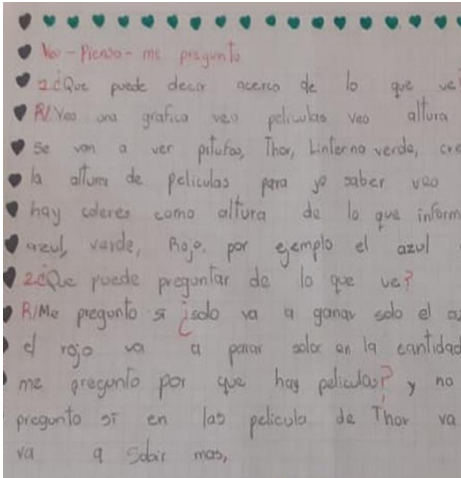 Veo - Pienso - me pregunto
1¿Que puede decir acerca de lo que ve?
R/Veo una grafica veo peliculas veo altura
Se van a ver pitufos, Thor, Linterna verde, cre
la altura de peliculas para yo saber veo
hay colores como altura de lo que inform
azul, verde, Rojo. por ejemplo el azul
2¿Que puede preguntar de lo que ve?
R/Me pregunto si ¿solo va a ganar solo el az
el rojo va a parar solo en la cantidad
me pregunto por que hay peliculas? y no
pregunto si en las pelicula de Thor va
va a Subir mas,